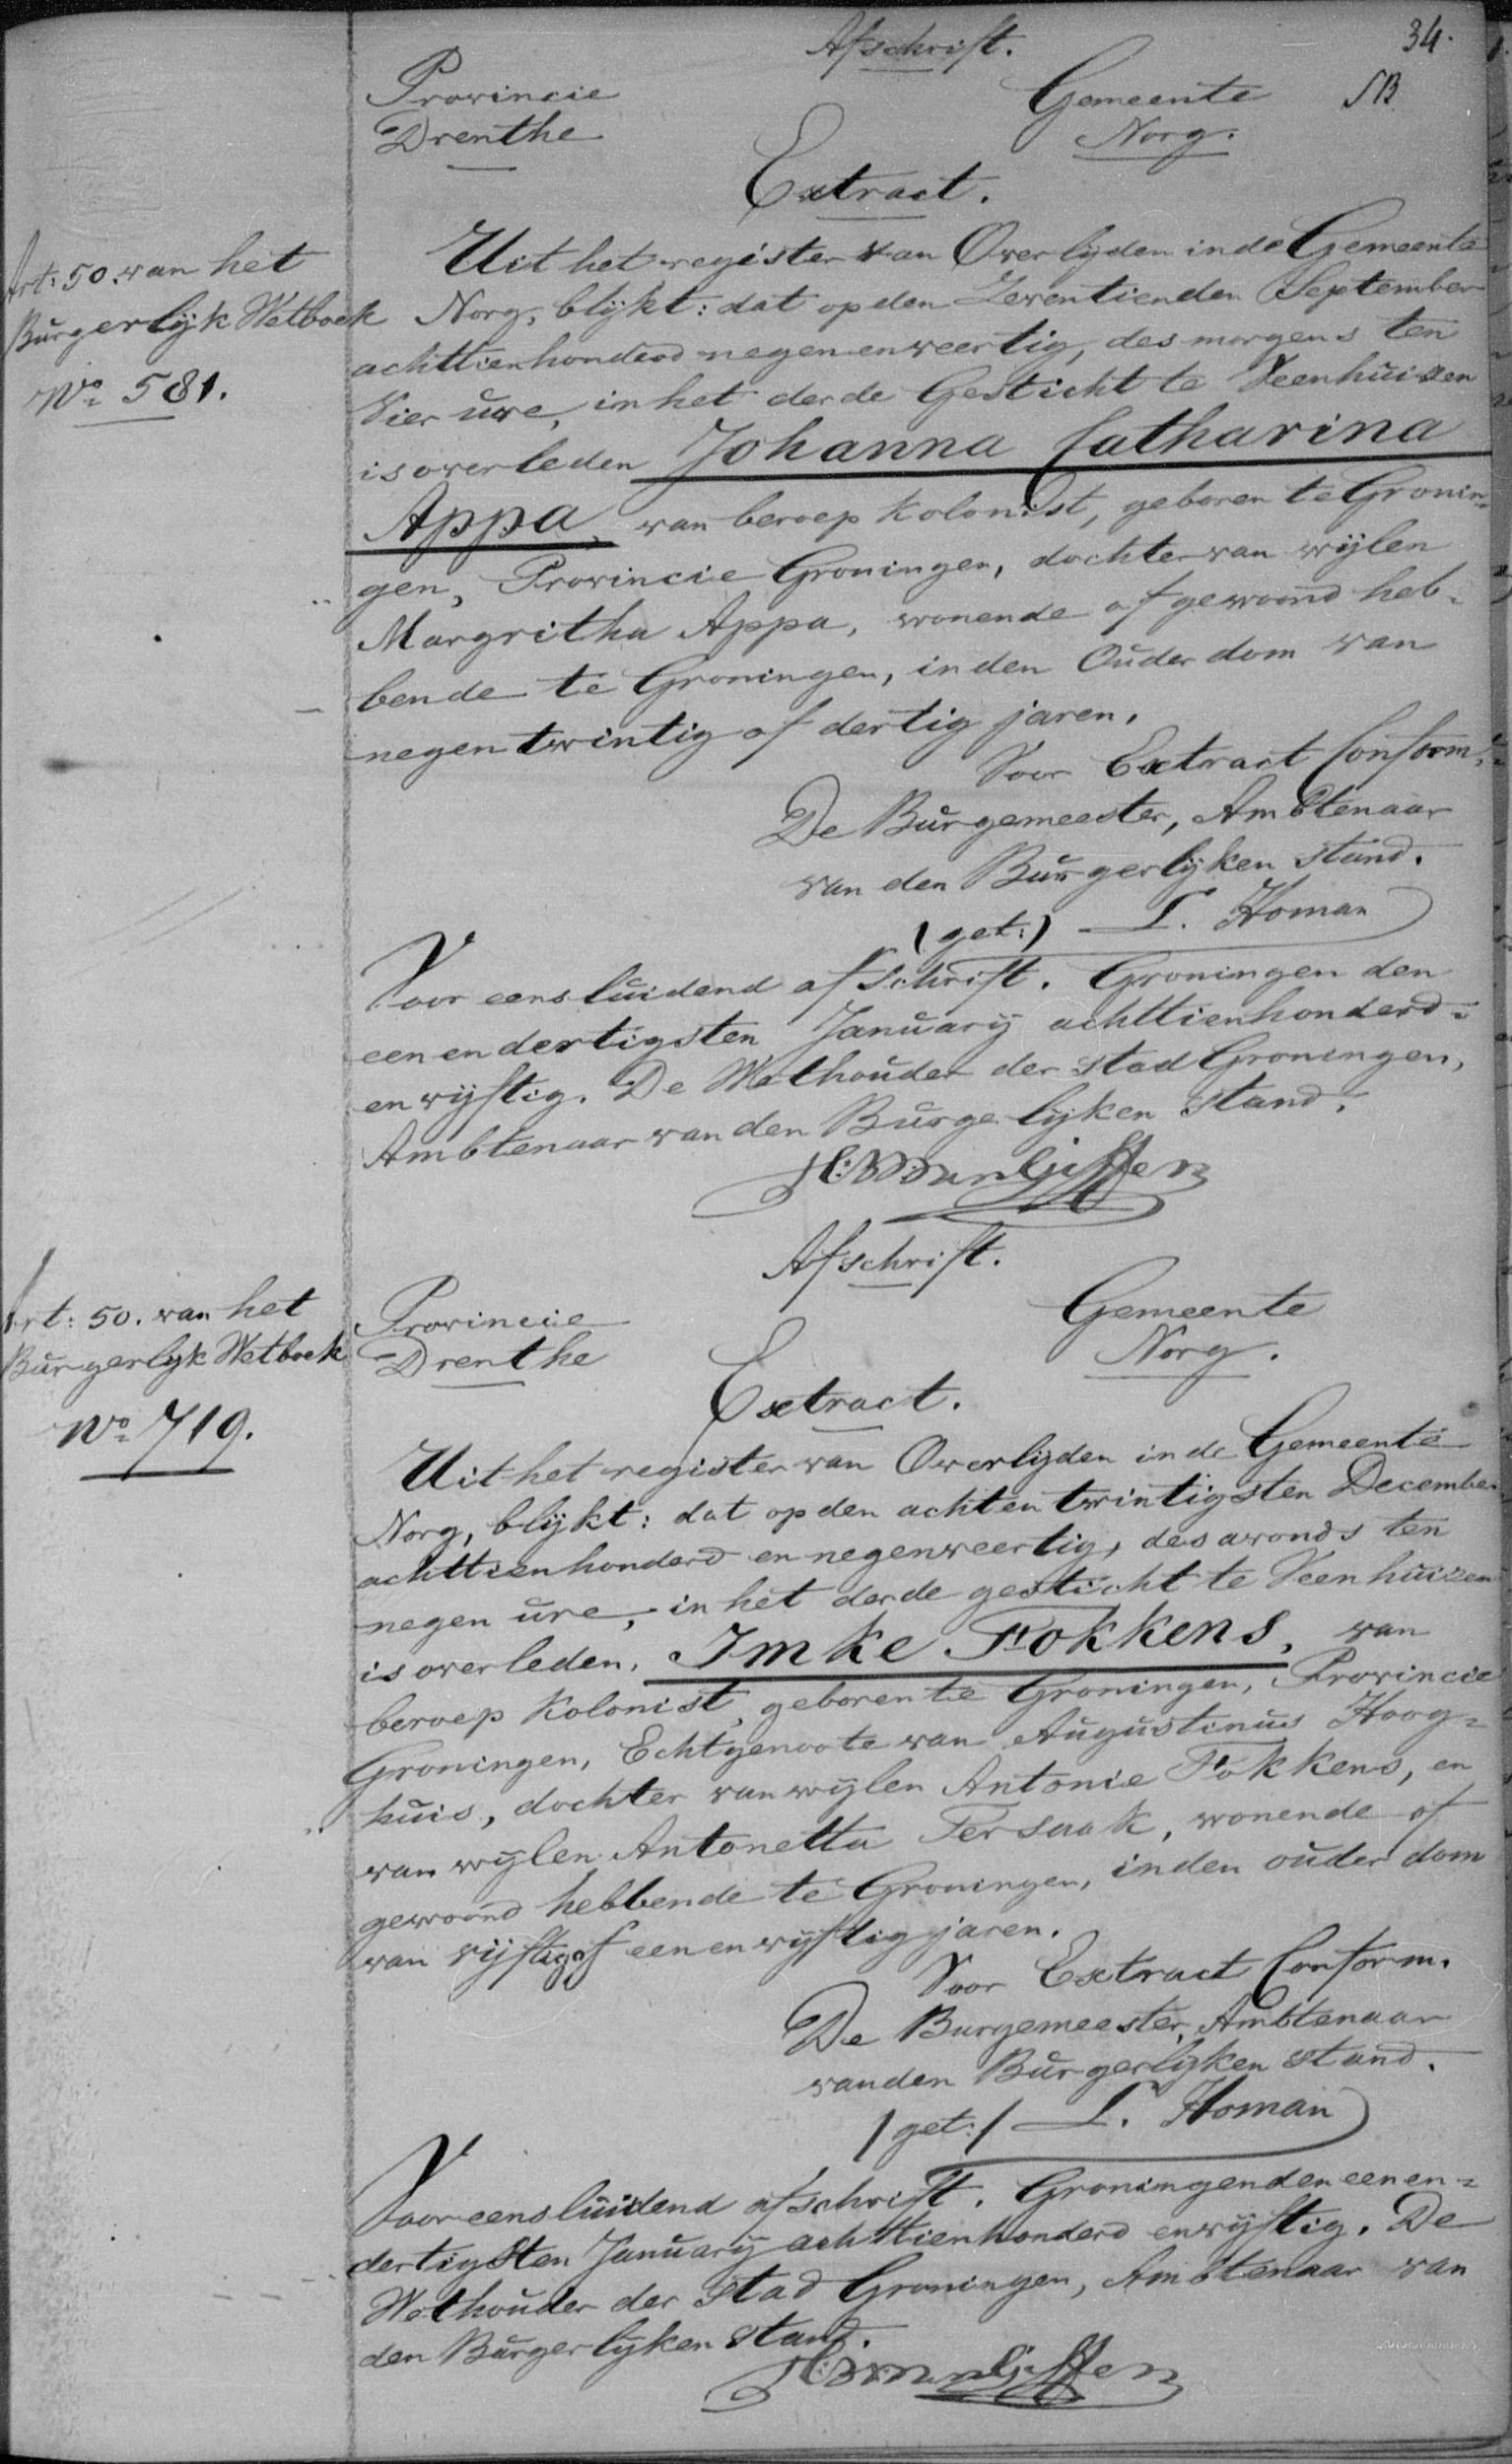 34.
Afschrift.
Provincie
Drenthe
Gemeente
Norg.
Extract.
Art: 50. van het
Burgerlijk Wetboek
No 581.
Uit het register van Overlijden in de Gemeente
Norg, blijkt: dat op den Zeventienden September
achttienhonderd negen en veertig, des morgens ten
Vier ure, in het derde Gesticht te Veenhuizen
is overleden Johanna Catharina
Appa, van beroep kolonist, geboren te Gronin-
gen, Provincie Groningen, dochter van wijlen
Margritha Appa, wonende of gewoond heb-
bende te Groningen, in den Ouderdom van
negentwintig of dertig jaren.
Voor Extract Conform,
De Burgemeester, Ambtenaar
van den Burgerlijken Stand.
(get:) L. Homan
Voor eensluidend afschrift. Groningen den
een en dertigsten January achttienhonderd-
en vijftig. De Wethouder der stad Groningen,
Ambtenaar van den Burgerlijken Stand.
Afschrift.
Art: 50. van het
Burgerlijk Wetboek
No 719.
Provincie
Drenthe
Gemeente
Norg.
Extract.
Uit het register van Overlijden in de Gemeente
Norg, blijkt: dat op den achtentwintigsten December
achttienhonderd en negenveertig, des avonds ten
negen ure, in het derde gesticht te Veenhuizen
is overleden, Imke Fokkens, van
beroep kolonist, geboren te Groningen, Provincie
Groningen, Echtgenoote van Augustinus Hoog-
huis, dochter van wijlen Antonie Fokkens, en
van wijlen Antonetta Tersaak, wonende of
gewoond hebbende te Groningen, in den ouderdom
van vijftig of een en vijftig jaren.
Voor Extract Conform.
De Burgemeester, Ambtenaar
van den Burgerlijken Stand.
/get:/ L. Homan
Voor eensluidend afschrift. Groningen den een en-
dertigsten January achttienhonderd en vijftig. De
Wethouder der Stad Groningen, Ambtenaar van
den Burgerlijken Stand.